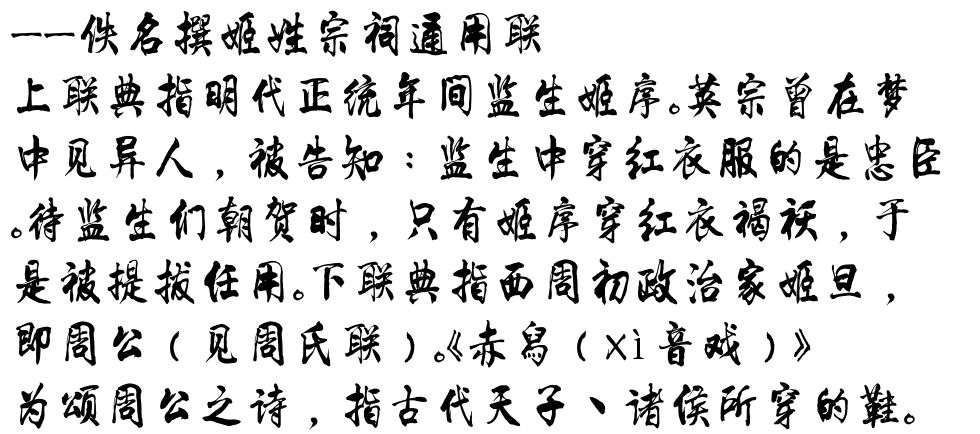 ——佚名撰姬姓宗祠通用联
上联典指明代正统年间监生姬序。英宗曾在梦
中见异人，被告知：监生中穿红衣服的是忠臣
。待监生们朝贺时，只有姬序穿红衣褐袄，于
是被提拔任用。下联典指西周初政治家姬旦，
即周公（见周氏联）。《赤舄（xì音戏）》
为颂周公之诗，指古代天子、诸侯所穿的鞋。